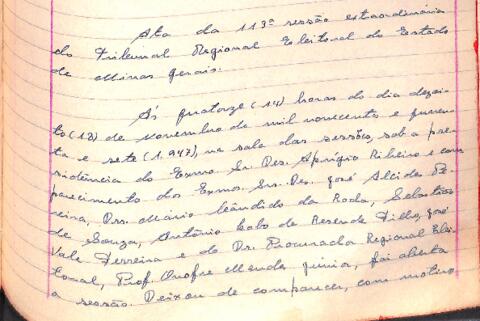 Ata da 113ª sessão extraordinária
do Tribunal Regional Eleitoral do Estado
de Minas Gerais.
Ás quatorze (14) horas do dia dezoi-
to (18) de novembro de mil novecentos e quaren-
ta e sete (1.947), na sala das sessões, sob a pre-
sidência do Exmo. Sr. Des. Aprigio Ribeiro e com
parecimento dos Exmos. Srs. Des. José Alcides Pe-
reira, Drs. Mário Cândido da Rocha, Sebastião
de Souza, Antônio Lobo de Resende Filho, José
Vale Ferreira e do Dr. Procurador Regional Elei-
toral, Prof. Onofre Mendes Júnior, foi aberta
a sessão. Deixou de comparecer, com motivo